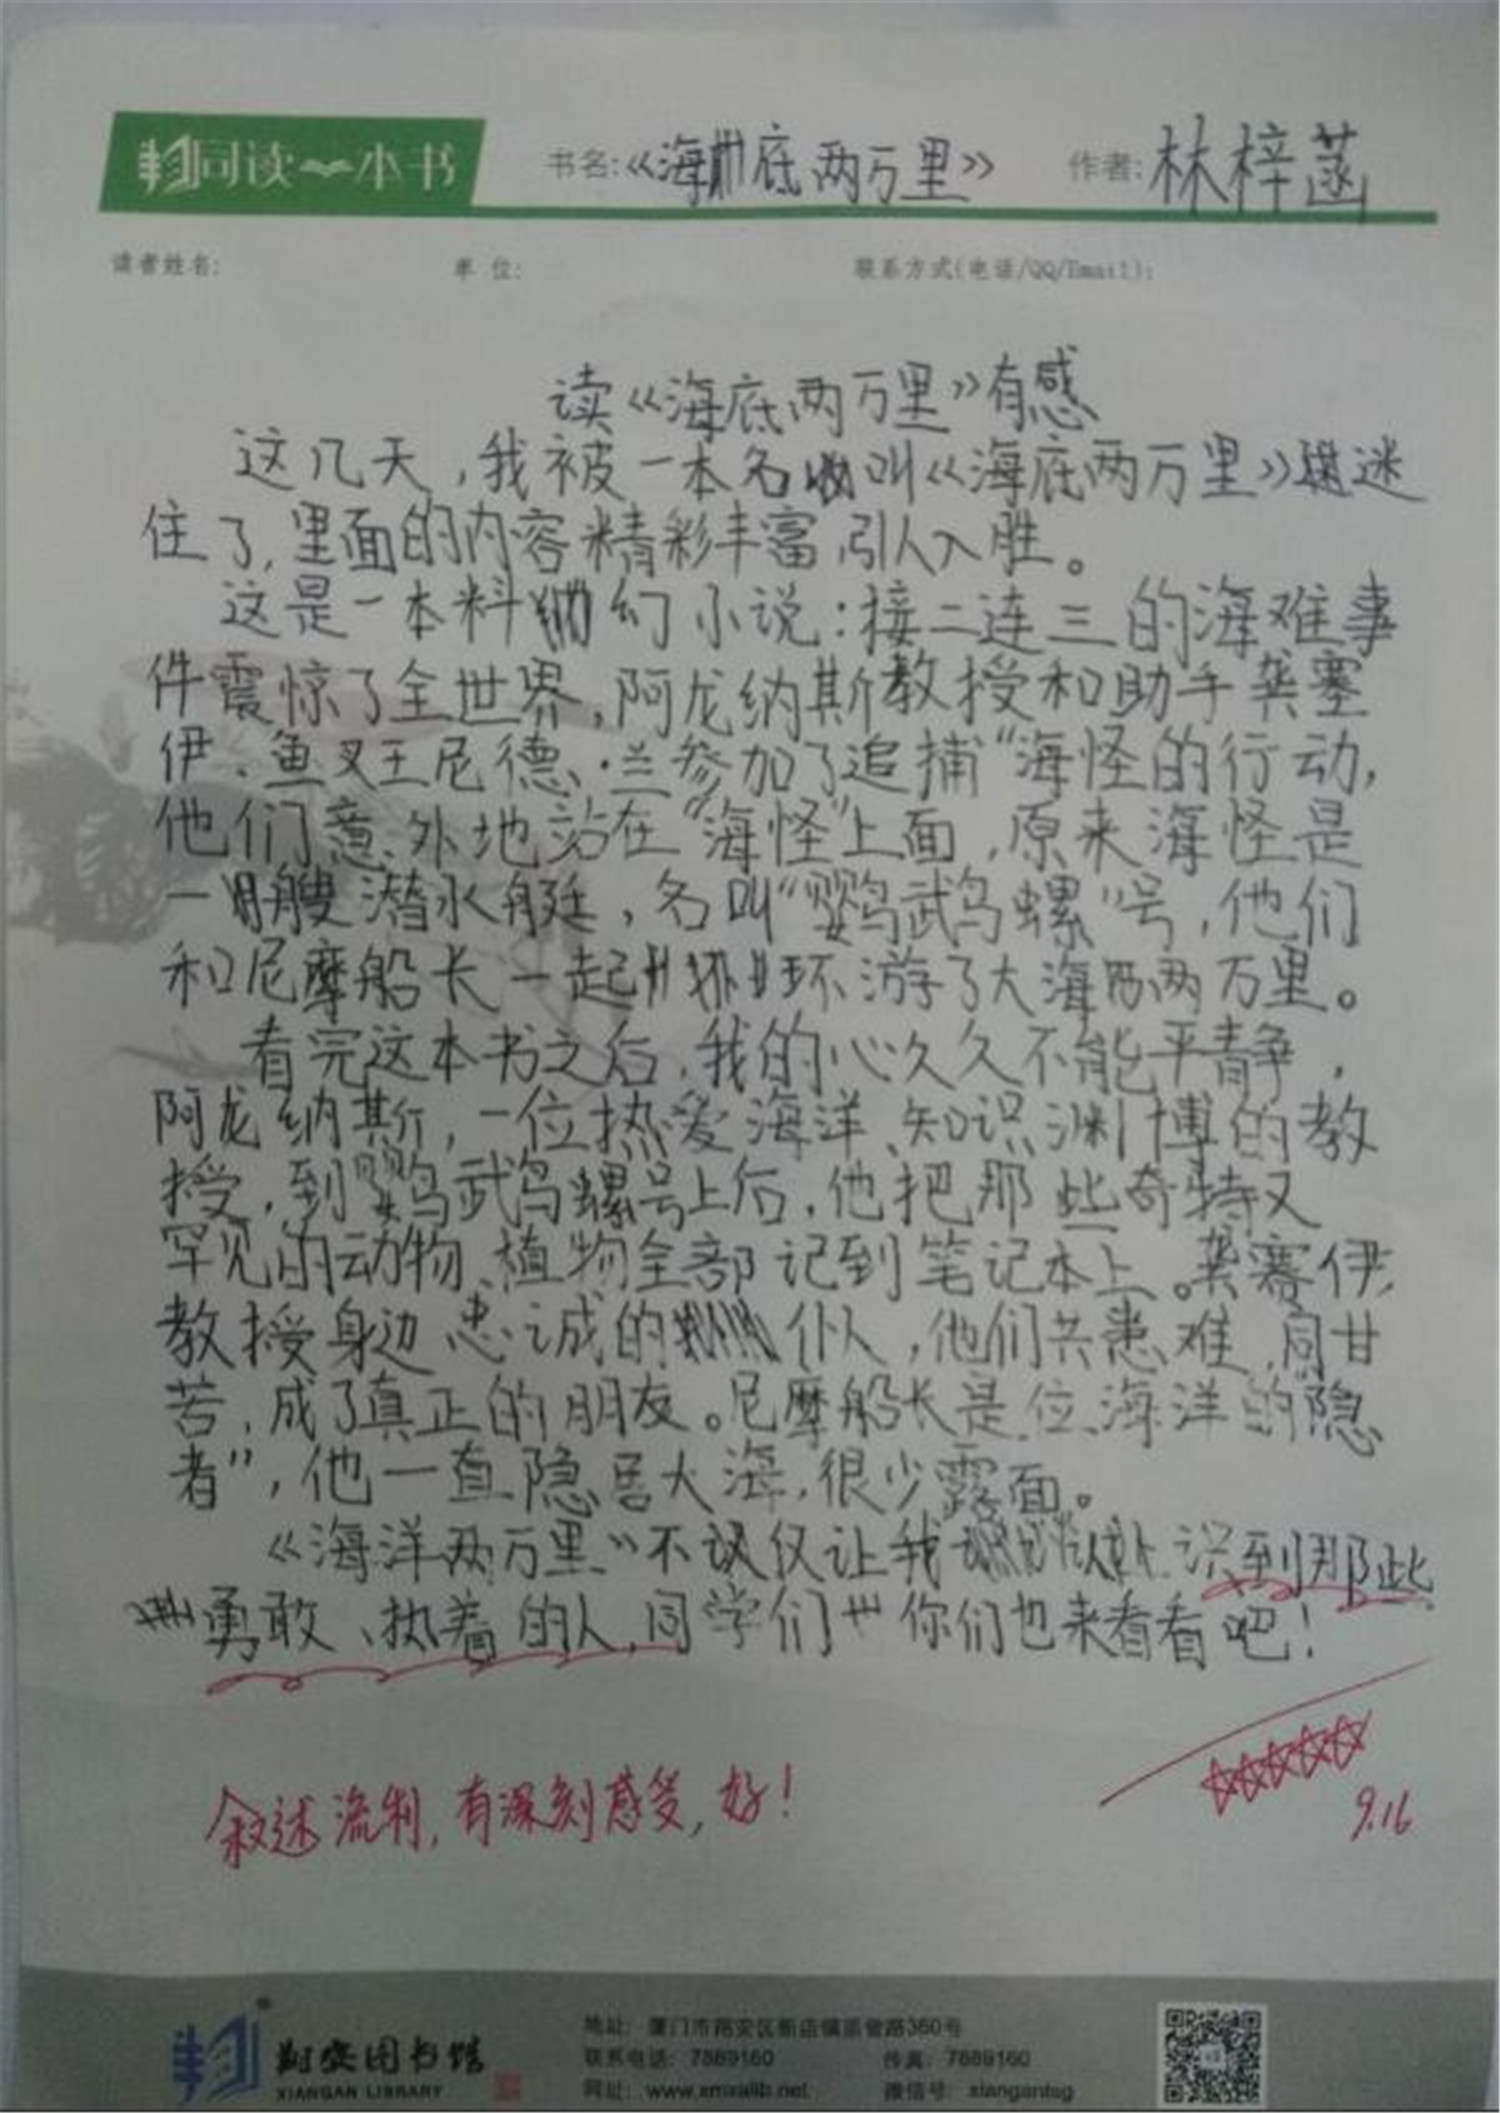 同读一本书 书名:《海底两万里》 作者:林梓菡
读者姓名: 单 位: 联系方式(电话/QQ/Email):
读《海底两万里》有感
这几天,我被一本名叫《海底两万里》迷
住了,里面的内容精彩丰富,引人入胜。
这是一本科幻小说:接二连三的海难事
件震惊了全世界,阿龙纳斯教授和助手龚塞
伊、鱼叉王尼德·兰参加了追捕“海怪的行动,
他们意外地站在“海怪”上面,原来海怪是
一艘潜水艇,名叫“鹦鹉螺”号,他们
和尼摩船长一起环游了大海两万里。
看完这本书之后,我的心久久不能平静,
阿龙纳斯,一位热爱海洋、知识渊博的教
授,到鹦鹉螺号上后,他把那些奇特又
罕见的动物、植物全部记到笔记本上。龚塞伊,
教授身边忠诚的仆人,他们共患难,同甘
苦,成了真正的朋友。尼摩船长是位海洋的隐
者”,他一直隐居大海,很少露面。
《海洋两万里》不仅让我认识到那些
勇敢、执着的人,同学们,你们也来看看吧!
叙述流利,有深刻感受,好!
9.16
翔安图书馆
XIANGAN LIBRARY
地址: 厦门市翔安区新店镇祥管路360号
联系电话: 7889160 传真: 7889160
网址: www.xmxalib.net 微信号: xiangantsg